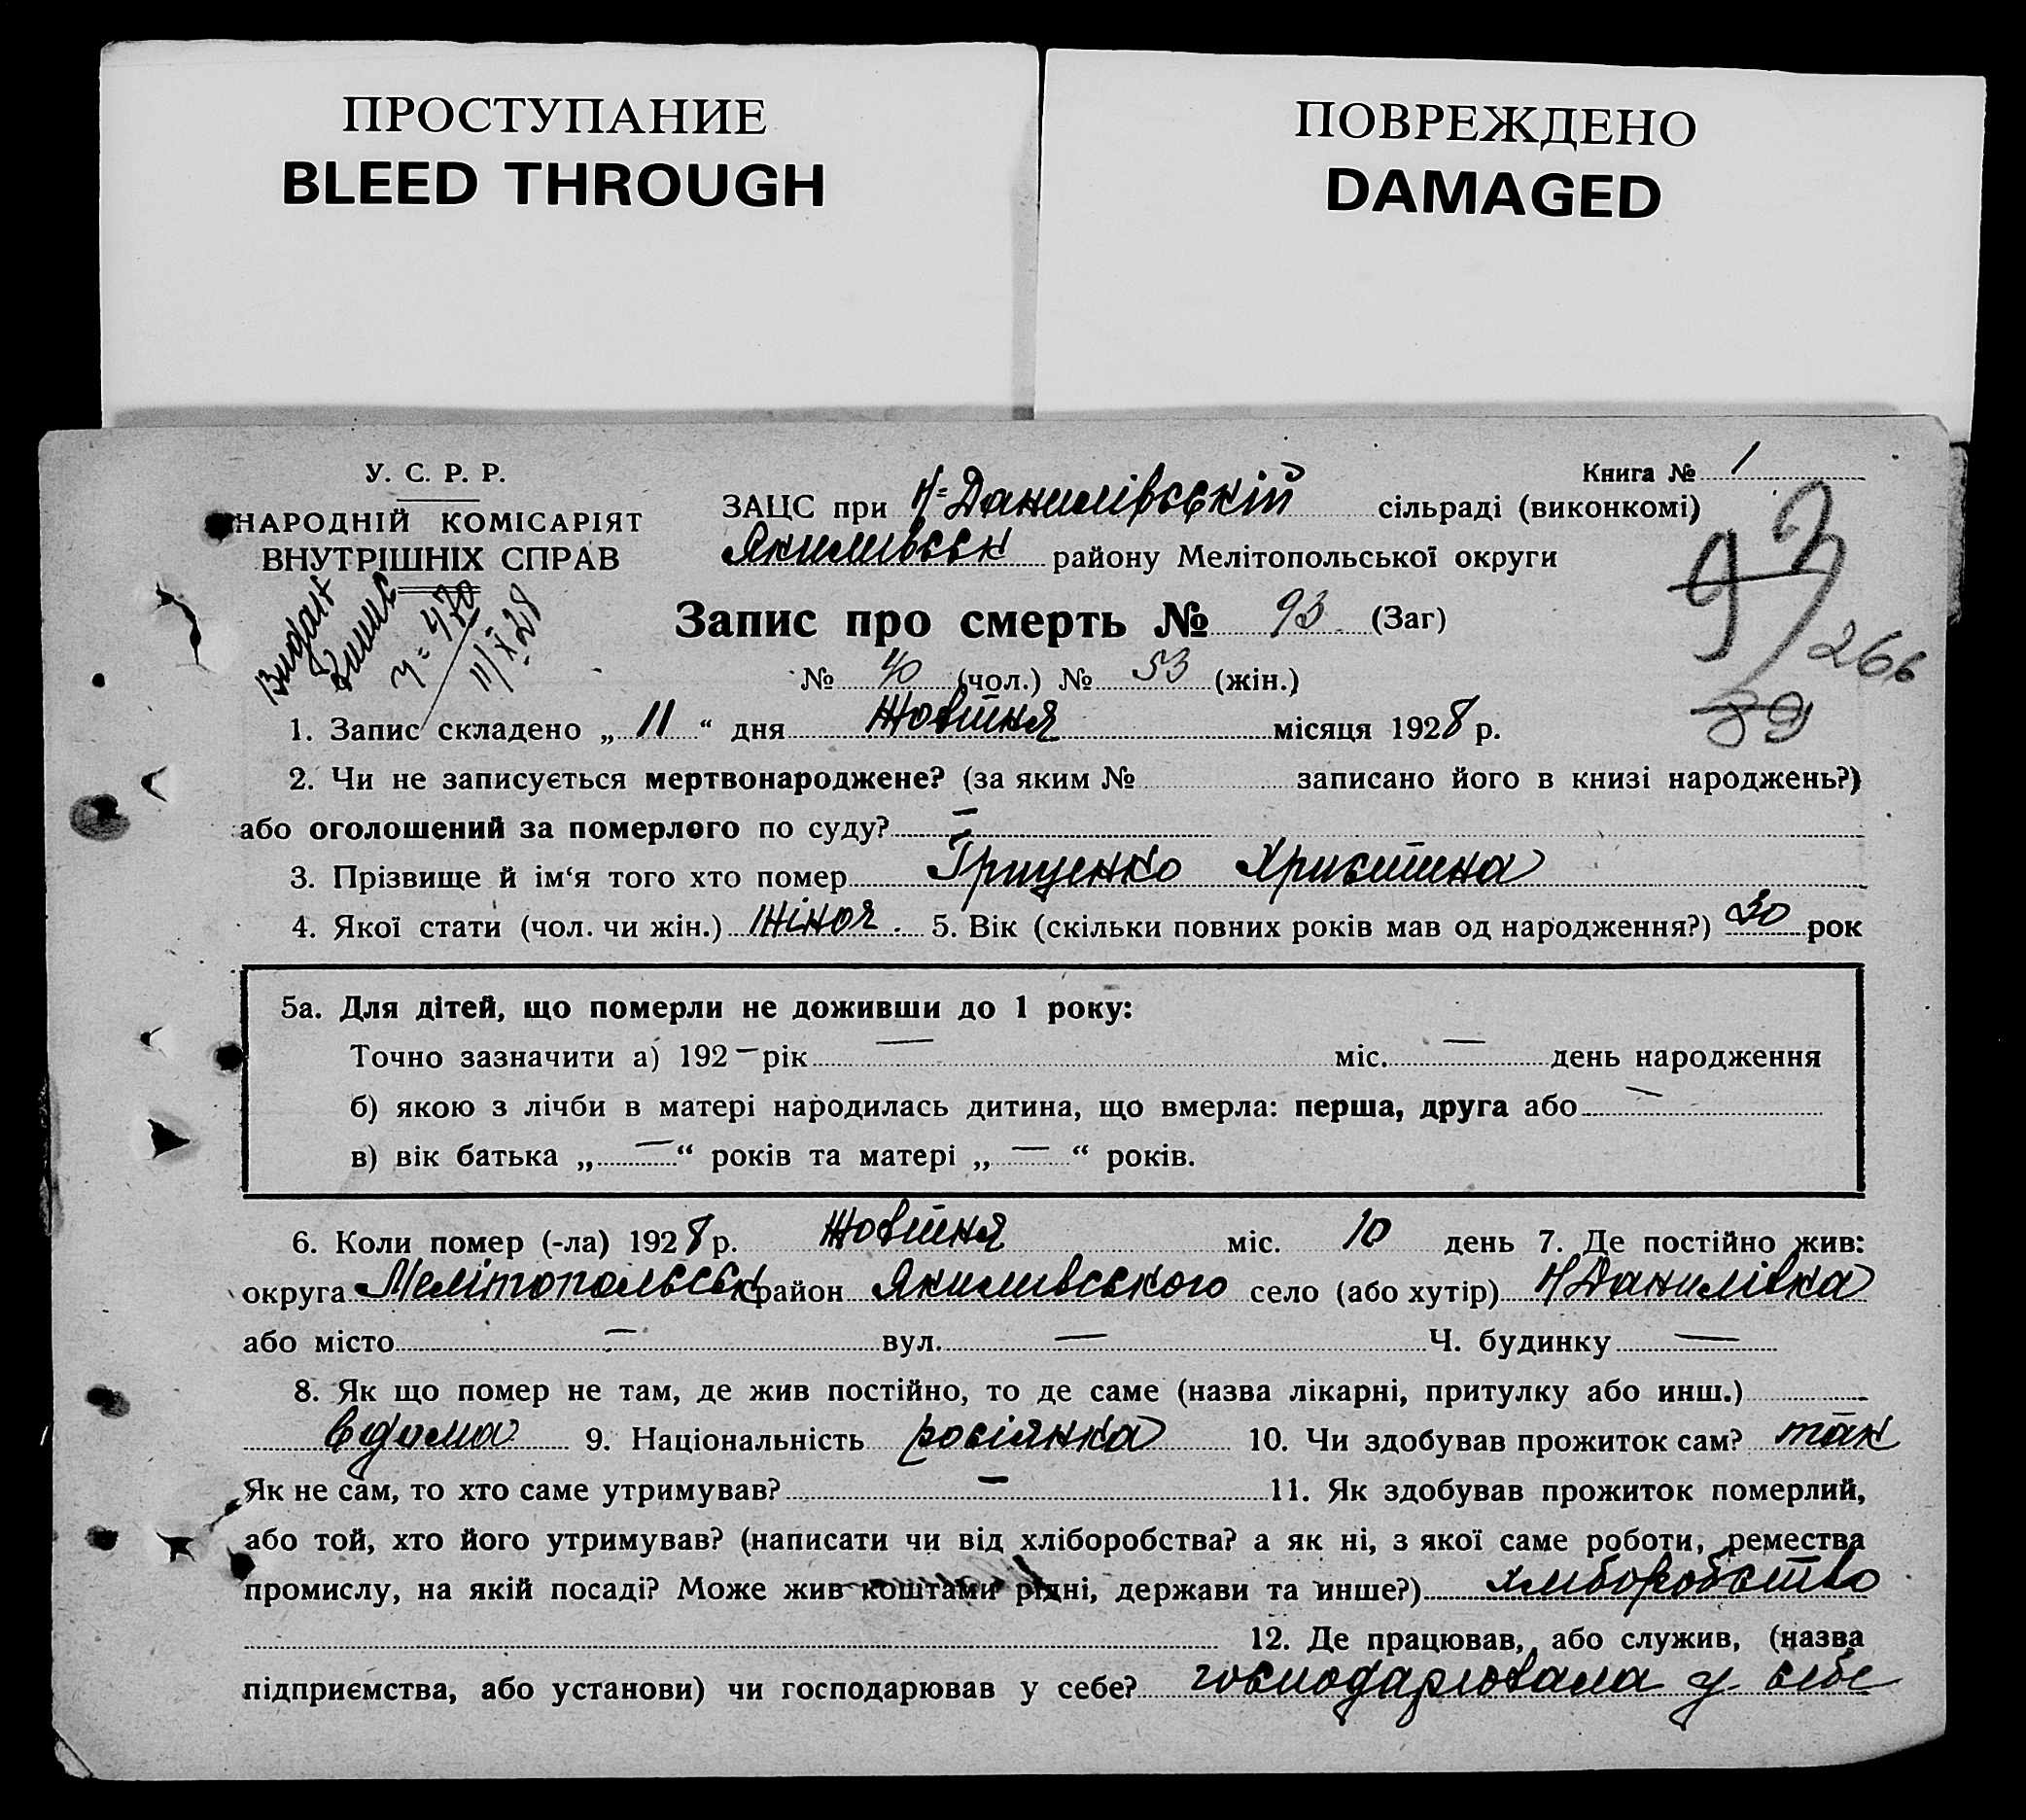 ПРОСТУПАНИЕ
BLEED THROUGH
ПОВРЕЖДЕНО
DAMAGED
У. С. Р. Р.
НАРОДНІЙ КОМІСАРІЯТ
ВНУТРІШНІХ СПРАВ
Книга № 1
ЗАЦС при Н-Данилівській сільраді (виконкомі)
Якимивськ району Мелітопольської округи
93
266
89
11/X 28
Запис про смерть № 93 (Заг)
№ 40 (чол.) № 53 (жін.)
1. Запис складено „ 11 “ дня Жовтня місяця 1928 р.
2. Чи не записується мертвонароджене? (за яким № записано його в книзі народжень?)
або оголошений за померлого по суду? —
3. Прізвище й ім‘я того хто помер Грищенко Христина
4. Якої стати (чол. чи жін.) Жіноч. 5. Вік (скільки повних років мав од народження?) 30 рок
5а. Для дітей, що померли не доживши до 1 року:
Точно зазначити а) 192 — рік — міс. — день народження
б) якою з лічби в матері народилась дитина, що вмерла: перша, друга або —
в) вік батька „ — “ років та матері „ — “ років.
6. Коли помер (-ла) 1928 р. Жовтня міс. 10 день 7. Де постійно жив:
округа Мелітопольськ район Якимивського село (або хутір) Н Данилівка
або місто — вул. — Ч. будинку —
8. Як що помер не там, де жив постійно, то де саме (назва лікарні, притулку або инш.)
вдома 9. Національність росіянка 10. Чи здобував прожиток сам? так
Як не сам, то хто саме утримував? — 11. Як здобував прожиток померлий,
або той, хто його утримував? (написати чи від хліборобства? а як ні, з якої саме роботи, ремества
промислу, на якій посаді? Може жив коштами рідні, держави та инше?) хлиборобство
12. Де працював, або служив, (назва
підприємства, або установи) чи господарював у себе? господарювала у себе